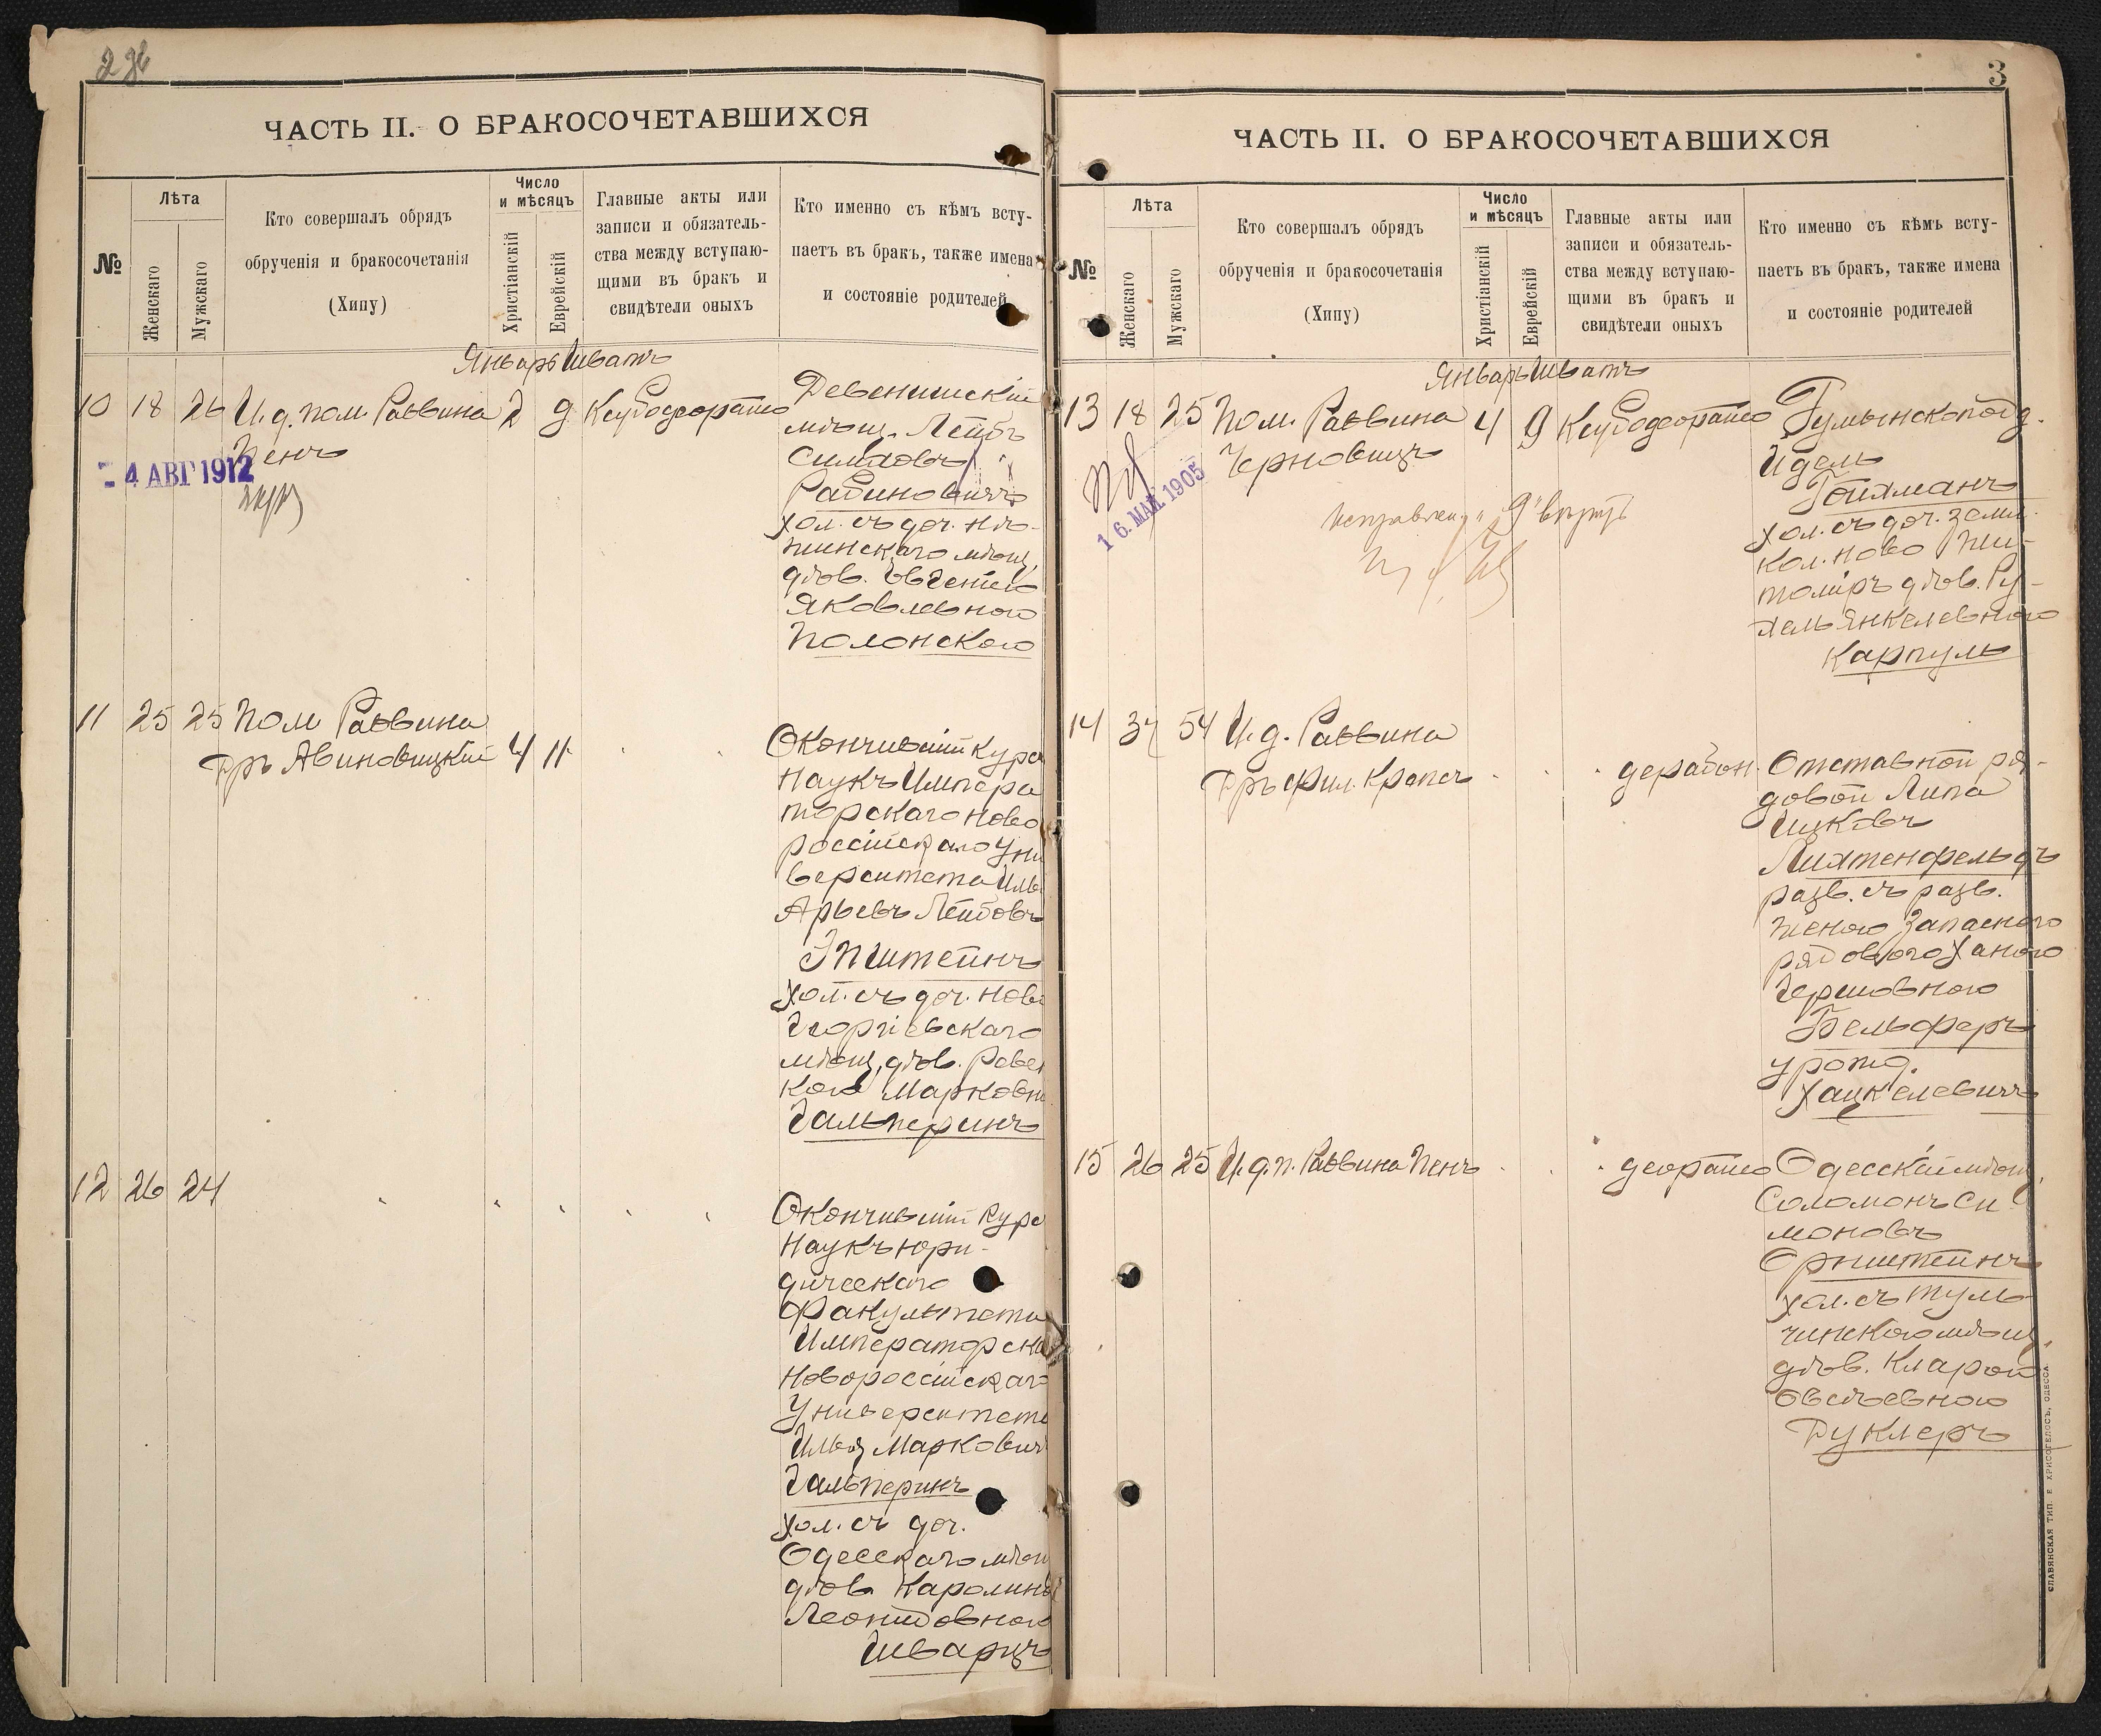 ЧАСТЬ II. О БРАКОСОЧЕТАВШИХСЯ
№
Лѣта
Женскаго
Мужскаго
Кто совершалъ обрядъ
обрученія и бракосочетанія
(Хипу)
Число
и мѣсяцъ
Христіанскій
Еврейскій
Главные акты или
записи и обязатель-
ства между вступаю-
щими въ бракъ и
свидѣтели оныхъ
Кто именно съ кѣмъ всту-
паетъ въ бракъ, также имена
и состояніе родителей
Январь Шватъ
10 18 26 И.д. пом. Раввина 2 9
Пенъ
4 АВГ 1912
Девенишскій
мѣщ. Лейбъ
Рабиновичъ
хол. съ доч. Нѣ-
жинскаго мѣщ.
дѣв. Евгеніей
Яковлевною
Полонскою
11 25 25 Пом Раввина
Дръ Авиновицкій 4 11
Окончившій курс
Наукъ Импера
торскаго Ново
россійскаго Уни
верситета
Арьевъ Лейбовъ
Эпштейнъ
хол. съ доч. Ново
Георгіевскаго
мѣщ. дѣв. Ревек
кой Марковн
Гальперинъ
12 26 24
Окончившій курс
Наукъ юри-
дическаго
Факультета
Императорска
Новороссійскаго
Университета
Илья Маркович
Гальперинъ
хол. съ доч.
Одесскаго мѣщ
дѣв. Каролиной
Леонидовною
Шварцъ
3
ЧАСТЬ II. О БРАКОСОЧЕТАВШИХСЯ
№
Лѣта
Женскаго
Мужскаго
Кто совершалъ обрядъ
обрученія и бракосочетанія
(Хипу)
Число
и мѣсяцъ
Христіанскій
Еврейскій
Главные акты или
записи и обязатель-
ства между вступаю-
щими въ бракъ и
свидѣтели оныхъ
Кто именно съ кѣмъ всту-
паетъ въ бракъ, также имена
и состояніе родителей
Январь Шватъ
13 18 25 Пом. Раввина 4 9
Черновицъ
16. МАЯ 1905
Румынско подд.
Идель
Гойхманъ
хол. съ доч. земл.
кол. Ново Жи-
томіръ дѣв. Ру-
хель Янкелевною
Карпуль
14 54 И.д. Раввина
Дръ Фил. Крепсъ
Отставной ря-
довой Липа
Ицковъ
Лихтенфельдъ
разв. съ разв.
женою Запасного
рядового Ханою
Гершовною
Бельферъ
урожд.
Хацкелевичъ
15 26 25 И.д.п. Раввина Пенъ
Одесскій мѣщ.
Соломонъ Си
моновъ
Орнштейнъ
хол. съ Туль
чинскою мѣщ.
дѣв. Кларой
Овсѣевною
Дуклеръ
СЛАВЯНСКАЯ ТИП. Е. ХРИСОГЕЛОСЪ, ОДЕССА.